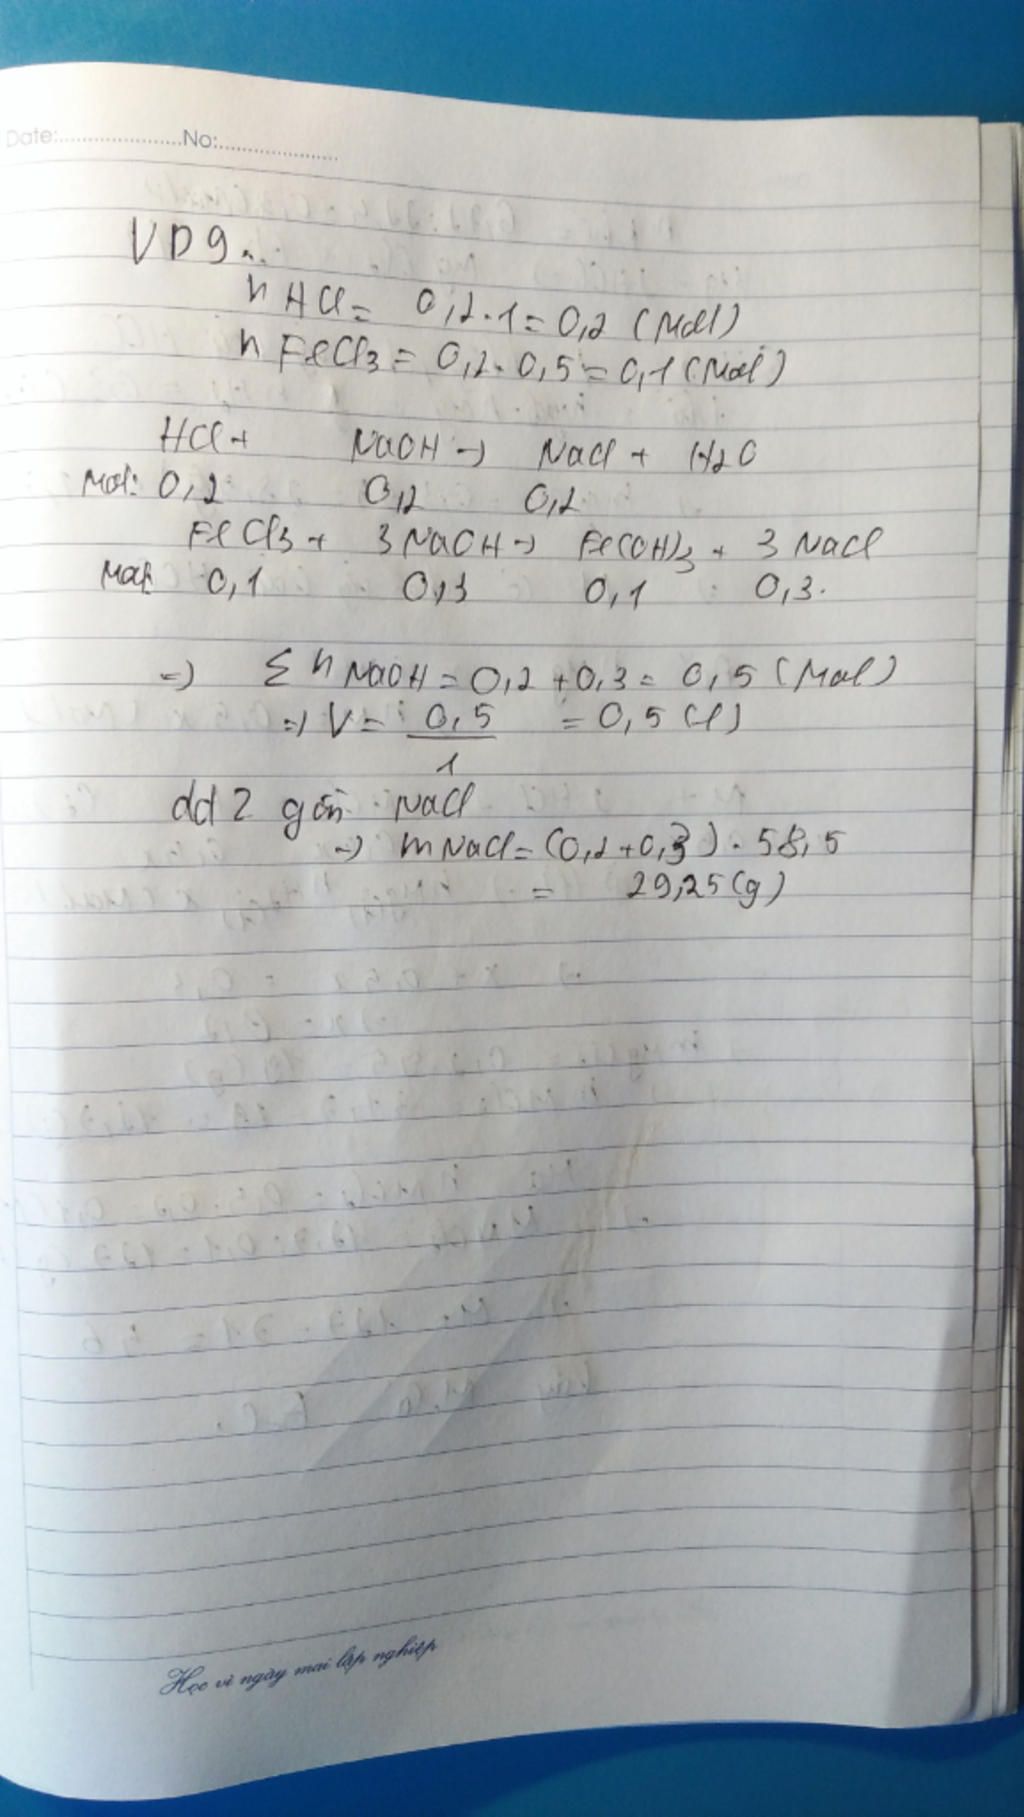 Date:....................No:....................
VD9.
n HCl = 0,2.1 = 0,2 (Mol)
n FeCl3 = 0,2.0,5 = 0,1 (Mol)
HCl + NaOH → NaCl + H2O
Mol: 0,2 0,2 0,2
FeCl3 + 3 NaOH → Fe(OH)3 + 3 NaCl
Mol: 0,1 0,3 0,1 0,3.
=) Σ n NaOH = 0,2 + 0,3 = 0,5 (Mol)
=) V = 0,5 = 0,5 (l)
1
dd Z gồm NaCl
=) mNaCl = (0,2 + 0,3) . 58,5
= 29,25 (g)
Học vì ngày mai lập nghiệp